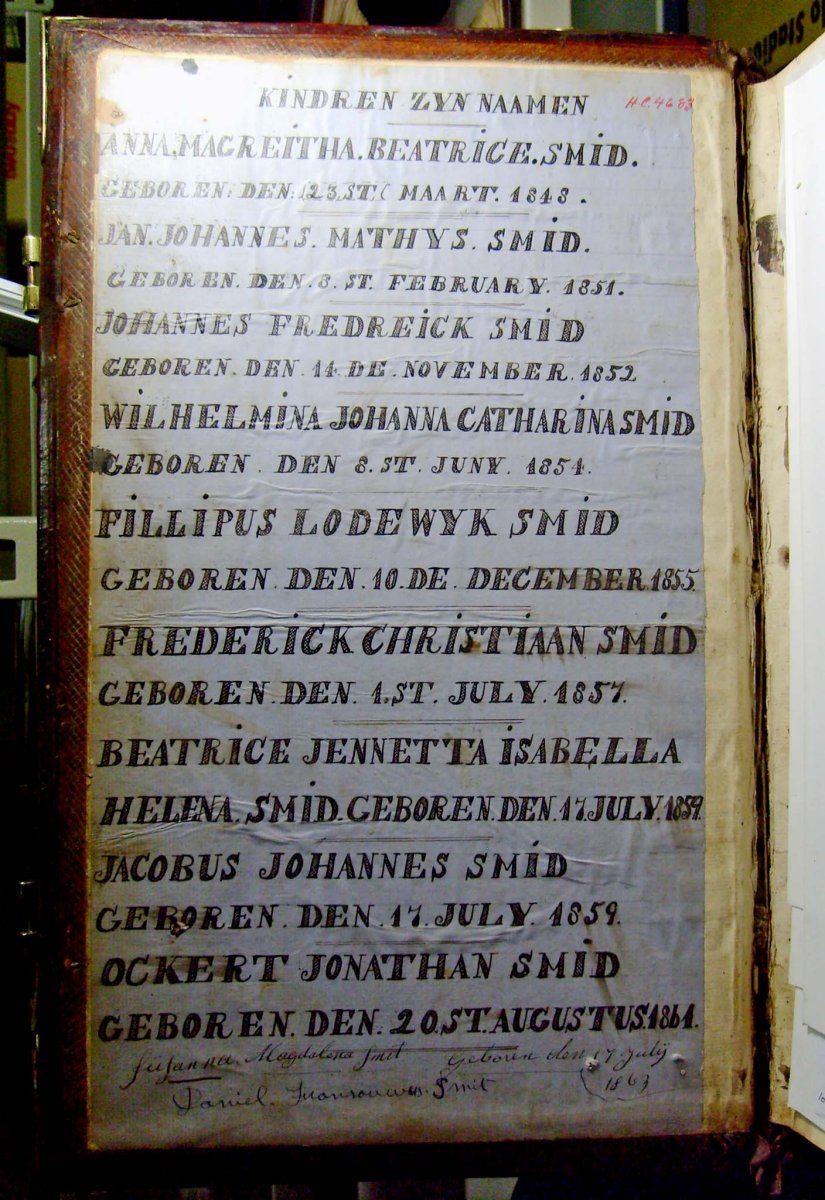 KINDREN ZYN NAAMEN H.C.4683
ANNA.MAGREITHA.BEATRICE.SMID.
GEBOREN: DEN: 23.ST. MAART. 1848.
JAN. JOHANNES. MATHYS. SMID.
GEBOREN. DEN. 8. ST. FEBRUARY. 1851.
JOHANNES FREDREICK SMID
GEBOREN. DEN. 14. DE. NOVEMBER. 1852
WILHELMINA JOHANNA CATHARINA SMID
GEBOREN. DEN 8. ST. JUNY. 1854.
FILLIPUS LODEWYK SMID
GEBOREN. DEN. 10. DE. DECEMBER 1855.
FREDERICK CHRISTIAAN SMID
GEBOREN. DEN. 1.ST. JULY. 1857.
BEATRICE JENNETTA ISABELLA
HELENA. SMID. GEBOREN. DEN. 17. JULY. 1859.
JACOBUS JOHANNES SMID
GEBOREN. DEN. 17. JULY. 1859.
OCKERT JONATHAN SMID
GEBOREN. DEN. 20.ST. AUGUSTUS. 1861.
Susanna Magdalena Smit Geboren den 17 July
1863
Daniel. Smit